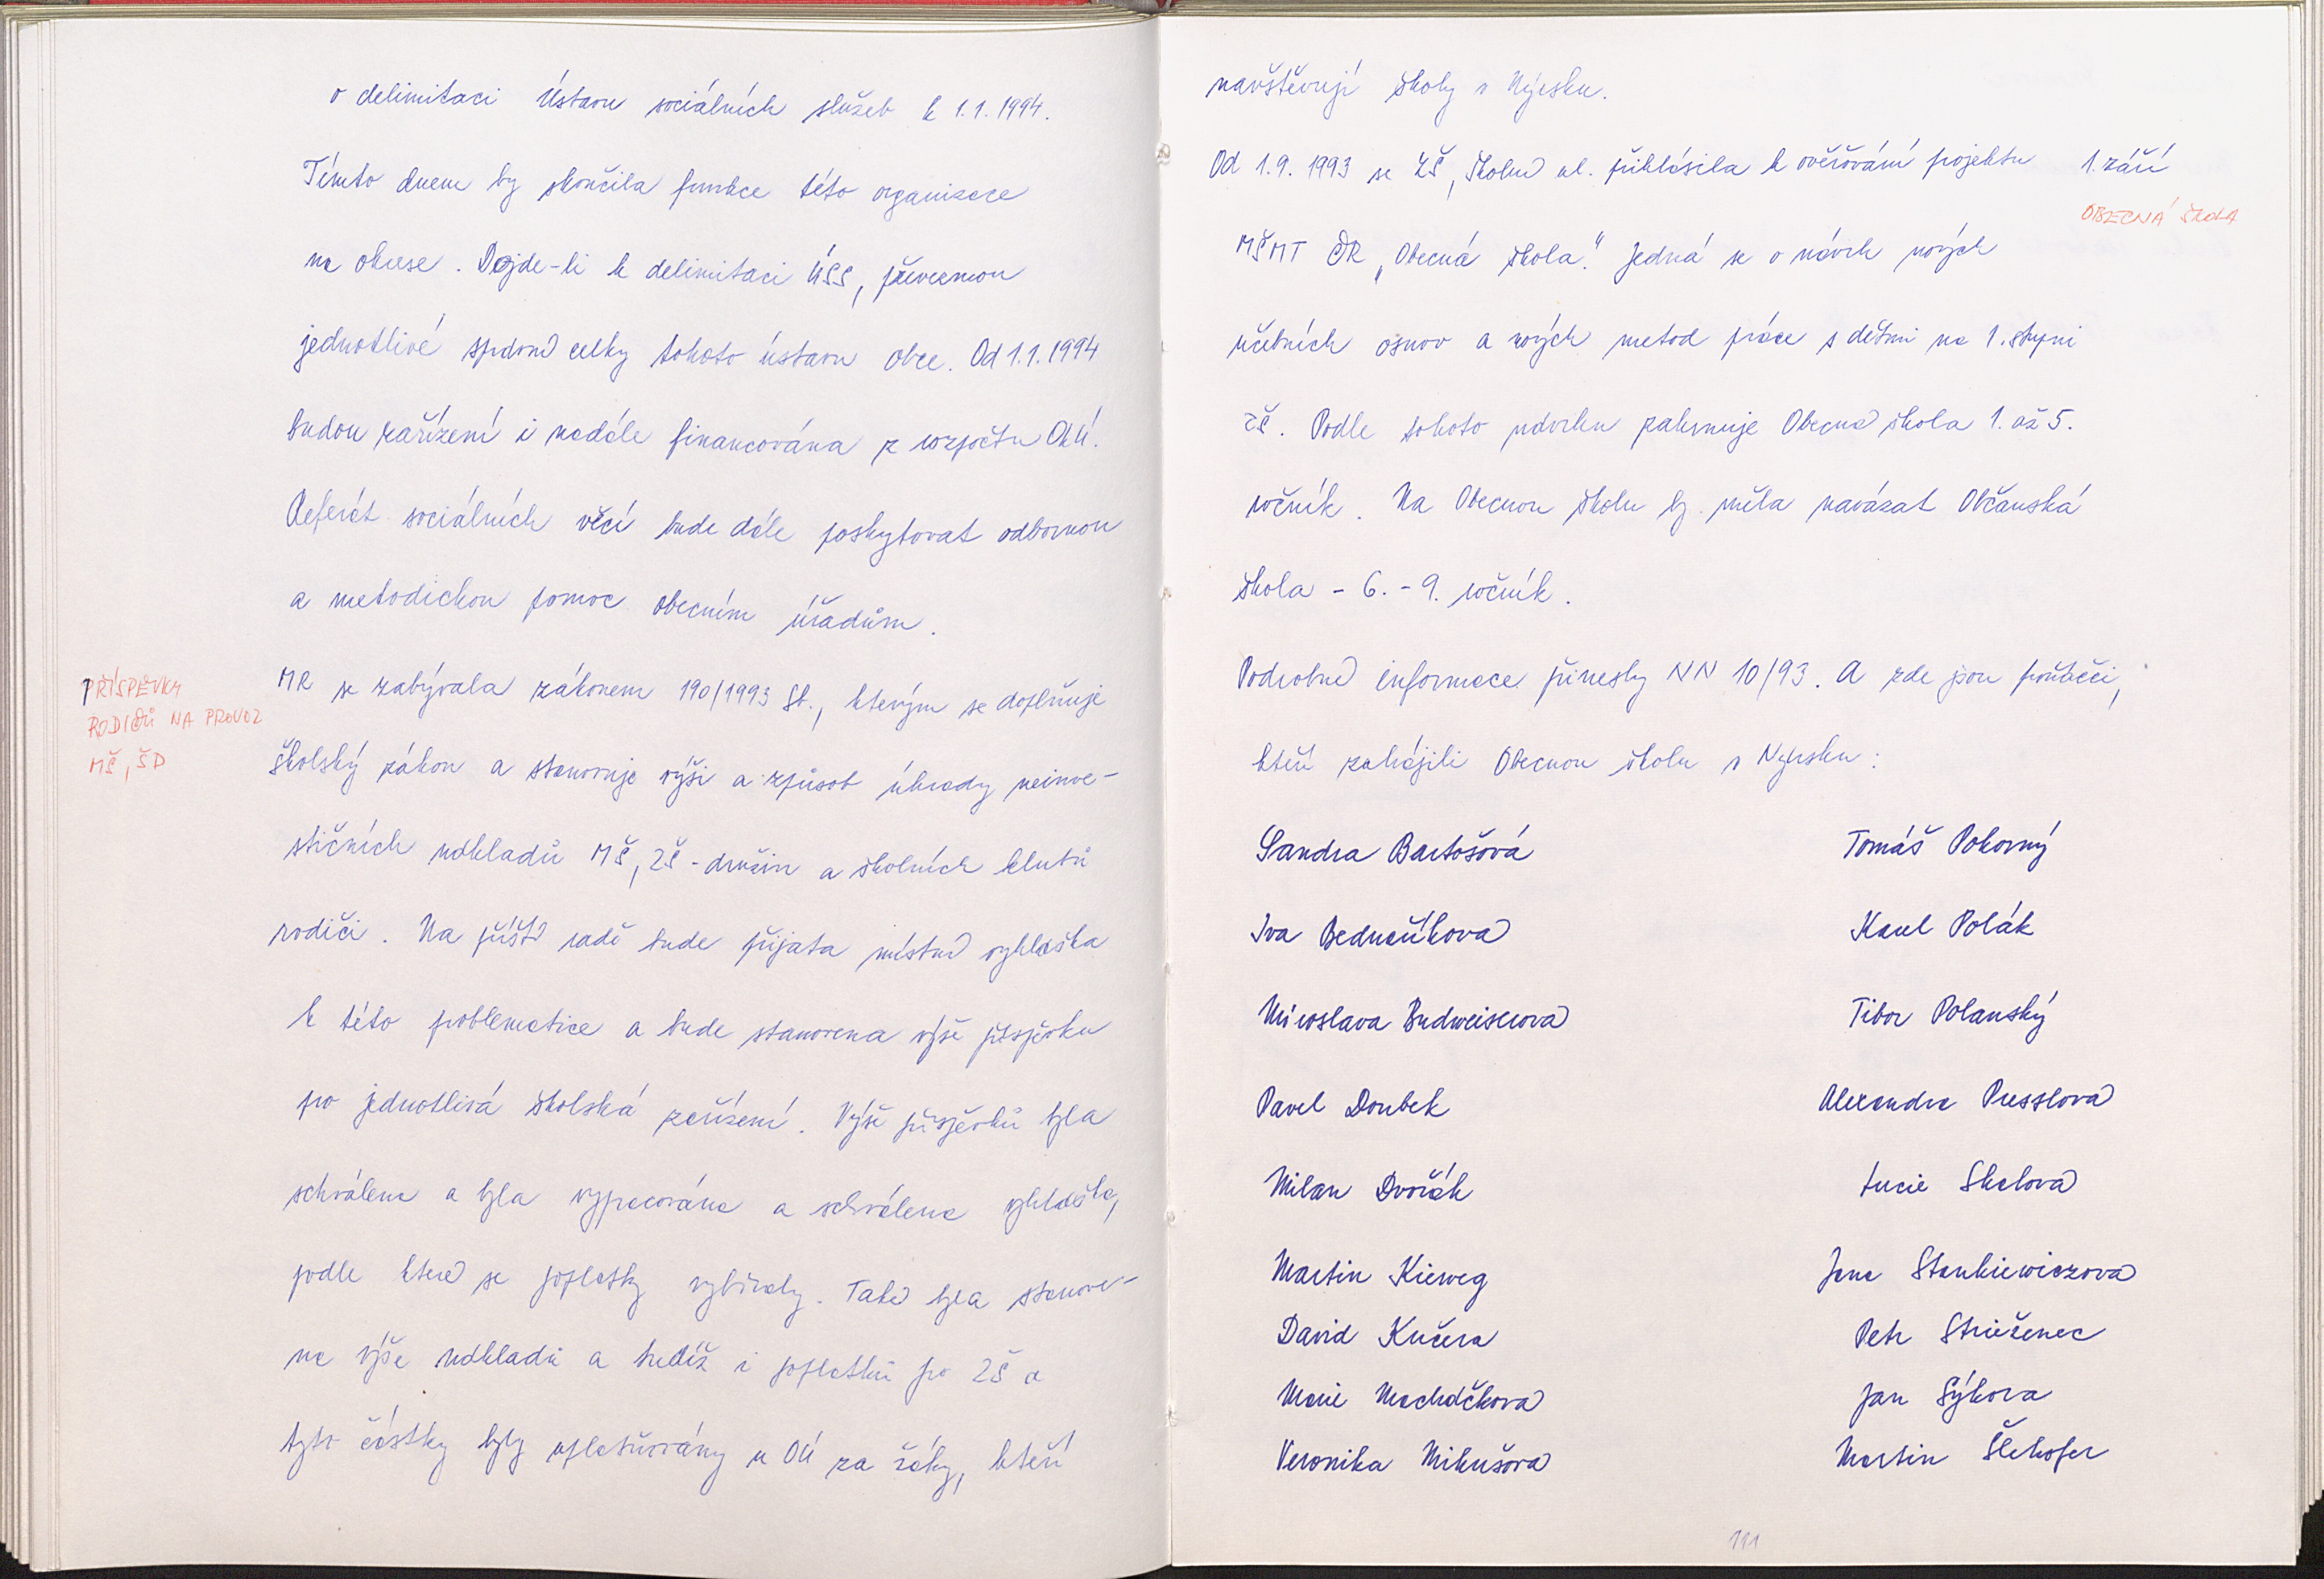 o delimitaci Ústavu sociálních služeb k 1.1.1994.
Tímto dnem by skončila funkce této organizace
na okrese. Dojde-li k delimitaci ÚSS, převezmou
jednotlivé správní celky tohoto ústavu obce. Od 1.1.1994
budou zařízení i nadále financována z rozpočtu OkÚ.
Referát sociálních věcí bude dále poskytovat odbornou
a metodickou pomoc obecním úřadům.
PŘÍSPĚVKY
RODIČŮ NA PROVOZ
MŠ, ŠD
MR se zabývala zákonem 190/1993 Sb., kterým se doplňuje
školský zákon a stanovuje výši a způsob úhrady neinve-
stičních nákladů MŠ, ZŠ - družin a školních klubů
rodiči. Na příští radě bude přijata místní vyhláška
k této problematice a bude stanovena výše příspěvku
pro jednotlivá školská zařízení. Výše příspěvků byla
schválena a byla vypracována a schválena vyhláška,
podle které se poplatky vybíraly. Také byla stanove-
na výše nákladů a tudíž i poplatků pro ZŠ a
tyto částky byly uplatňovány u OÚ za žáky, kteří
navštěvují školy v Nýrsku.
Od 1.9.1993 se ZŠ, Školní ul. přihlásila k ověřování projektu
1. září
OBECNÁ ŠKOLA
MŠMT ČR „Obecná škola". Jedná se o návrh nových
učebních osnov a nových metod práce s dětmi na 1. stupni
ZŠ. Podle tohoto návrhu zahrnuje Obecná škola 1. až 5.
ročník. Na Obecnou školu by měla navázat Občanská
škola - 6. - 9. ročník.
Podrobné informace přinesly NN 10/93. A zde jsou prvňáčci,
kteří zahájili Obecnou školu v Nýrsku:
Sandra Bartošová
Tomáš Pokorný
Iva Bednaříková
Karel Polák
Miroslava Budweiserová
Tibor Polanský
Pavel Doubek
Alexandra Presslová
Milan Dvořák
Lucie Skalová
Martin Kieweg
Jana Stankiewiczová
David Kučera
Petr Střiženec
Marie Macháčková
Jan Sýkora
Veronika Mikušová
Martin Šlehofer
191